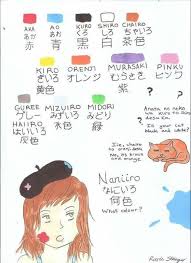 AKA AO KURO SHIRO CHAIRO
あか あお くろ しろ ちゃいろ
赤 青 黒 白 茶色
KIRO ORENJI MURASAKI PINKU
きいろ オレンジ むらさき ピンク
黄色 紫
GUREE MIZUIRO MIDORI
グレー みずいろ みどり
HAIIRO 水色 緑
はいいろ
灰色
? ?
Anata no neko
wa kuro to shiro
desu ka?
Is your cat
black and white?
Iie, chairo
to orenji desu.
No, its brown
and orange.
Naniiro
なにいろ
何色
What colour?